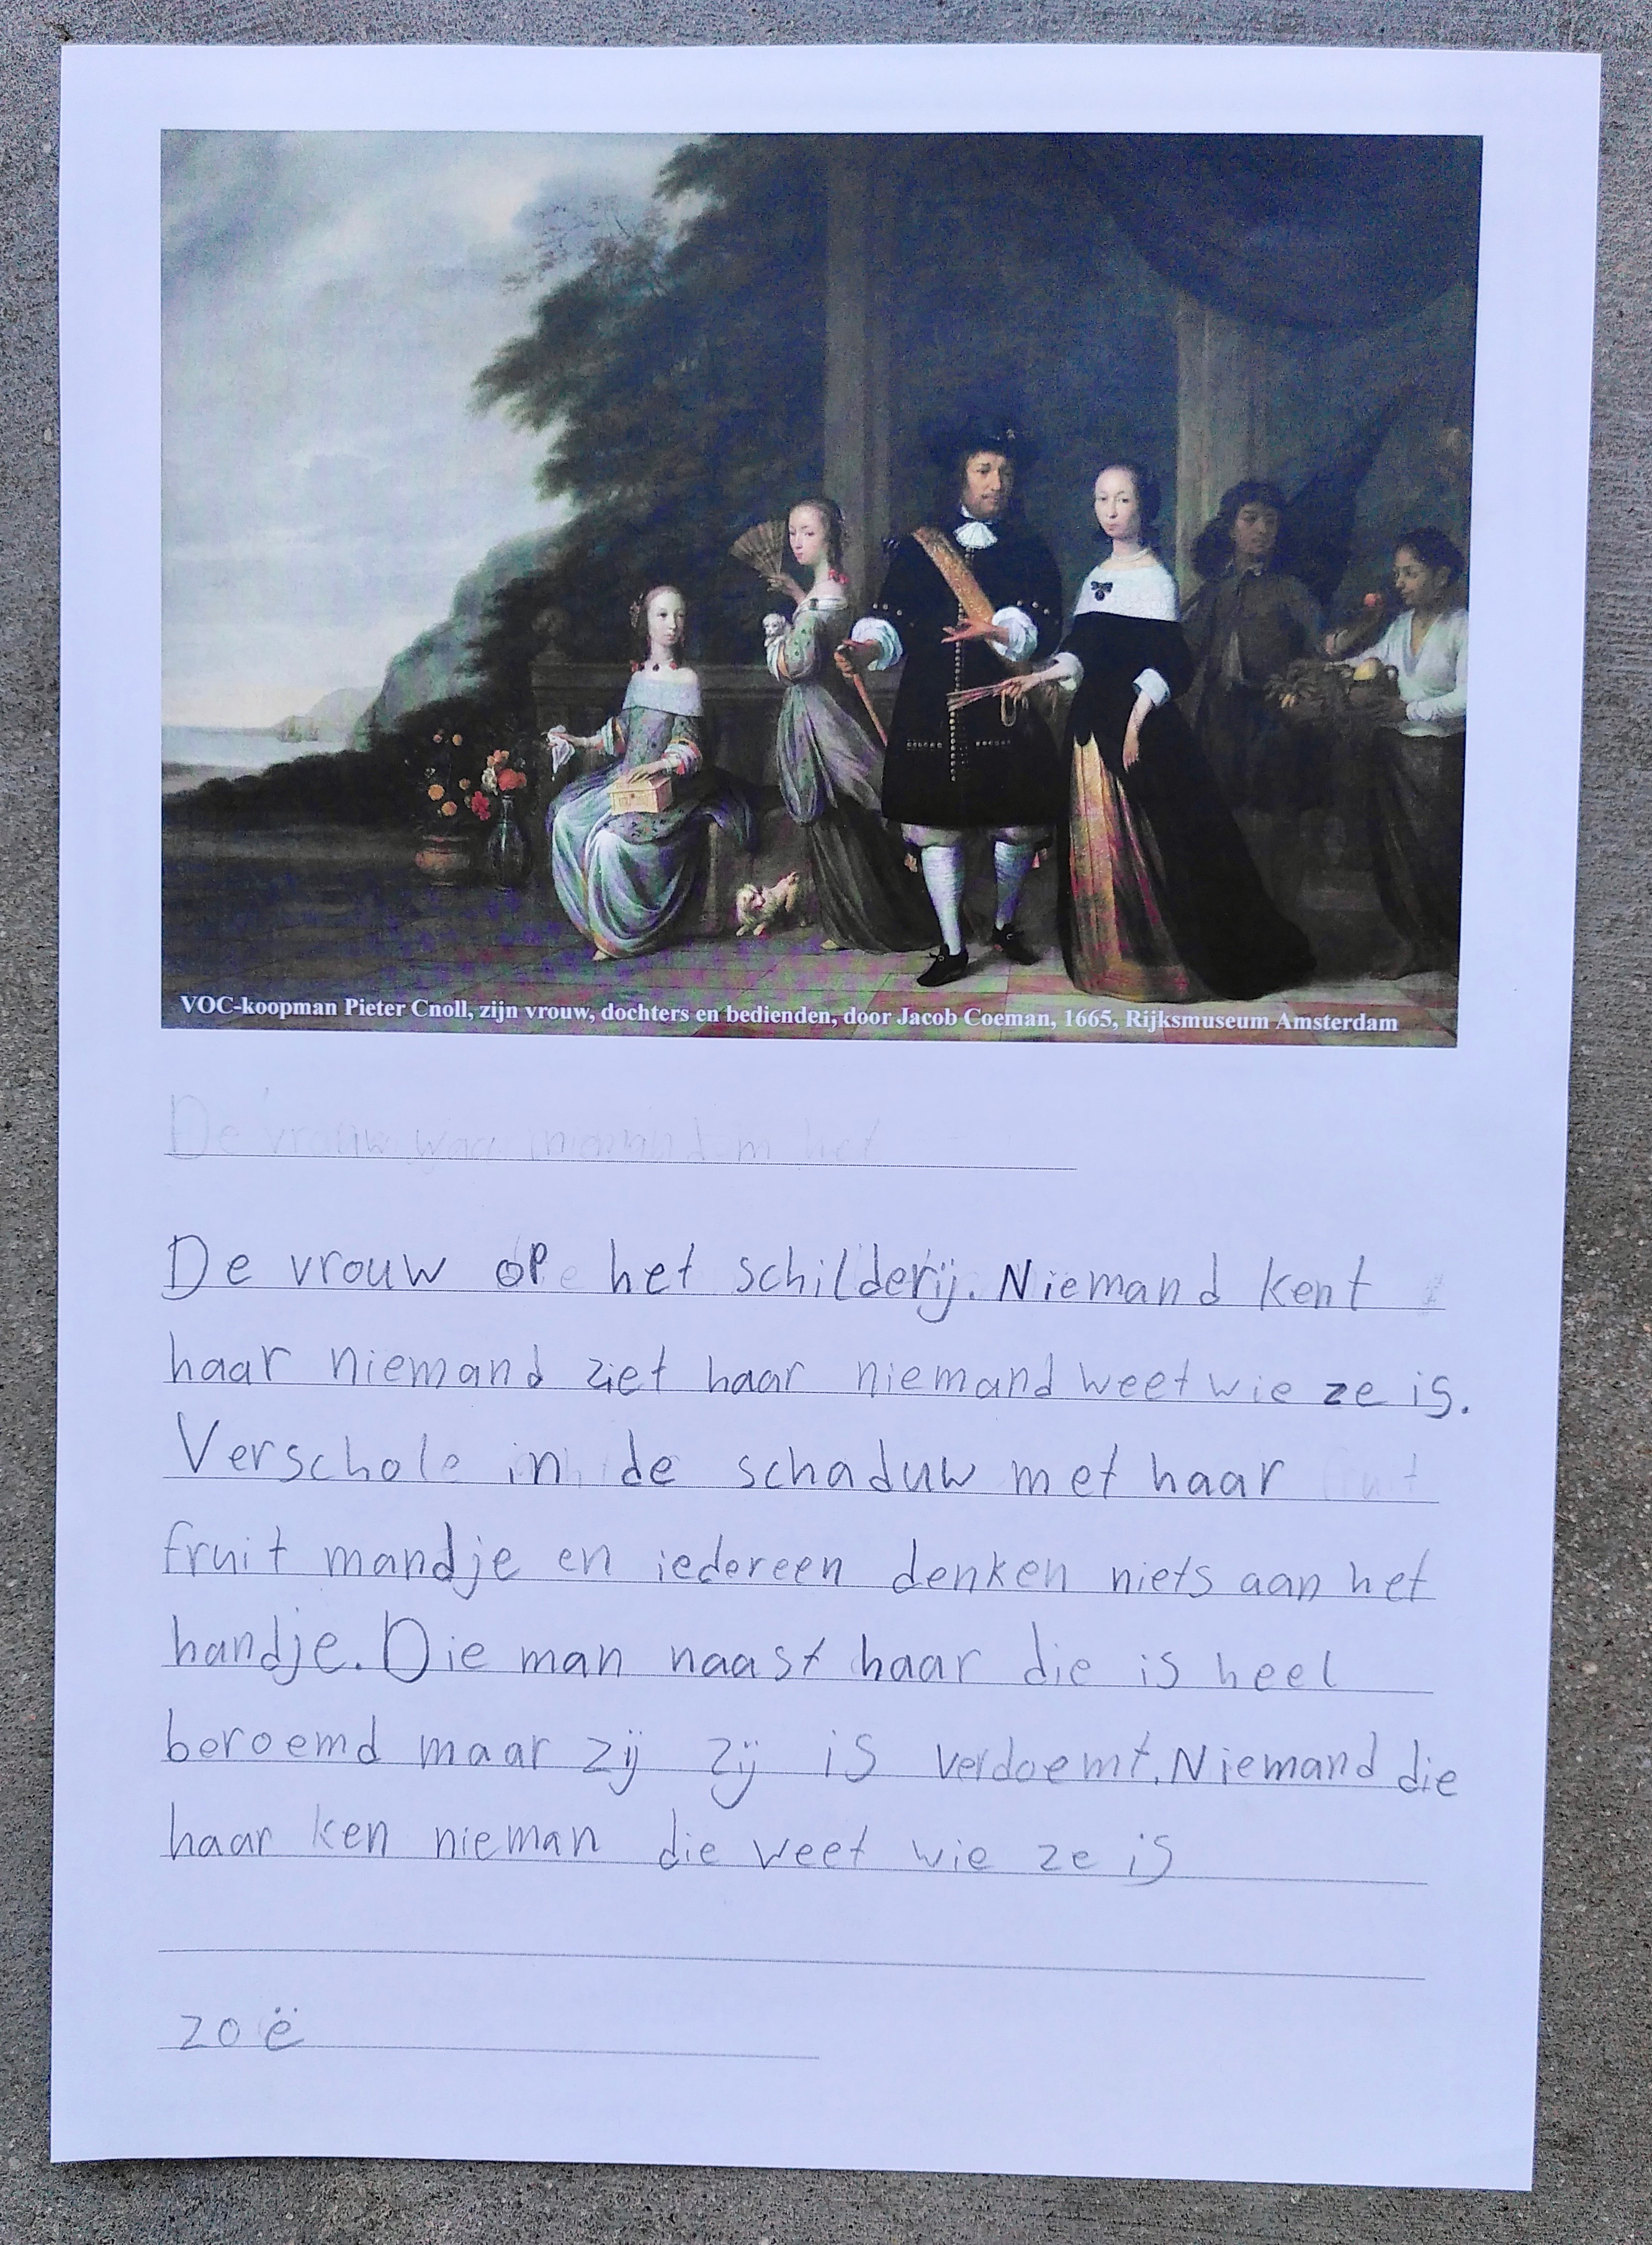 VOC-koopman Pieter Cnoll, zijn vrouw, dochters en bedienden, door Jacob Coeman, 1665, Rijksmuseum Amsterdam
De vrouw het
De vrouw op het schilderij. Niemand kent
haar niemand ziet haar niemand weet wie ze is.
Verschole in de schaduw met haar
fruit mandje en iedereen denken niets aan het
handje. Die man naast haar die is heel
beroemd maar zij zij is verdoemt. Niemand die
haar ken nieman die weet wie ze is
zoë